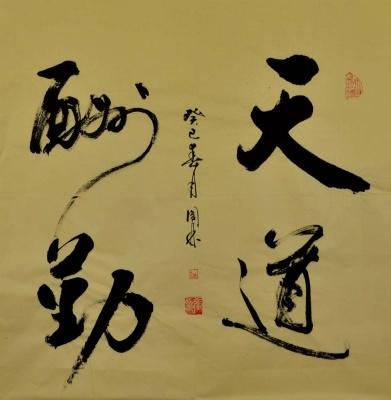 天道
酬勤
癸巳春月